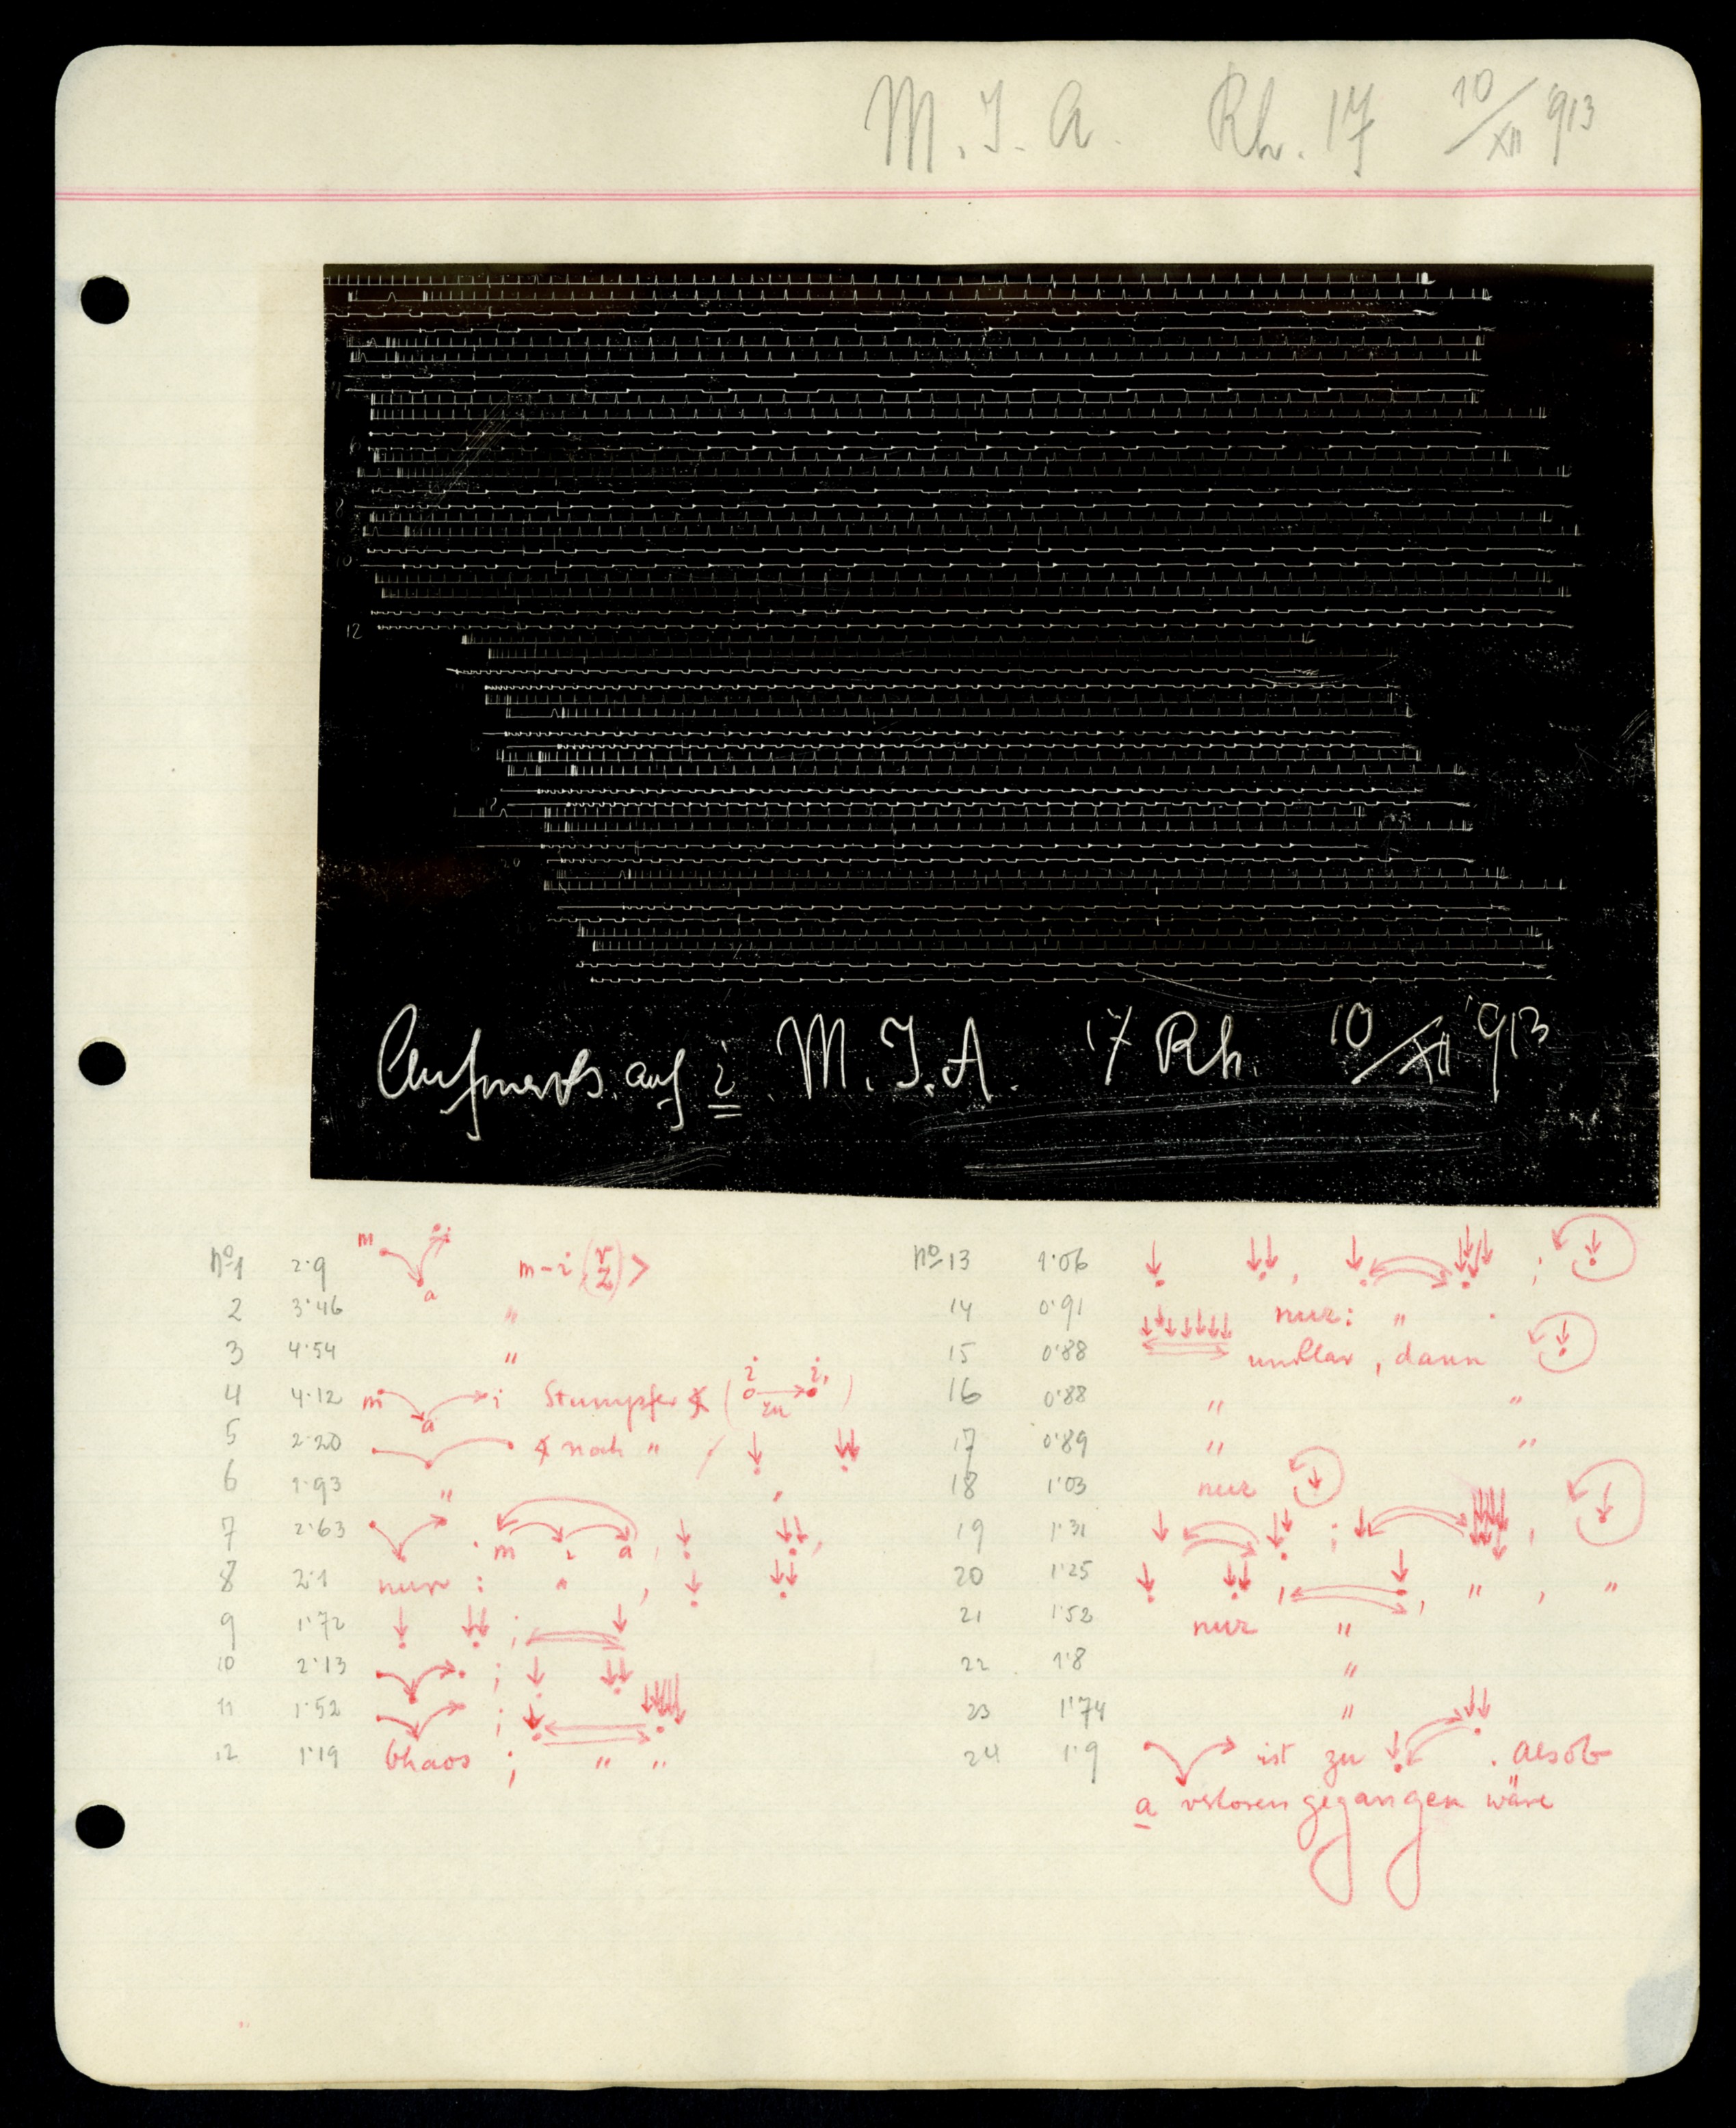 M. I. A. Rh. 17 10/XII '913
4
6
8
10
12
Aufmerks. auf i. M. I. A. 17 Rh. 10/XII '913
m i
a
No 1 2·9 m-i >
2 3·46 "
3 4·54 "
4 4·12 m a i Stumpfer ( i zu i, )
5 2·20 noch "
6 1·93 " "
7 2·63 m i a
8 2·1 nur : " ,
9 1·72 ;
10 2·13 ;
11 1·52 ;
12 1·19 Chaos ; " "
No 13 1·06 , ;
14 0·91 nur: "
15 0·88 unklar, dann
16 0·88 " "
17 0·89 " "
18 1·03 nur
19 1·31 ; ,
20 1·25 , , " , "
21 1·52 nur "
22 1·8 "
23 1·74 "
24 1·9 ist zu . Als ob
a verloren gegangen wäre